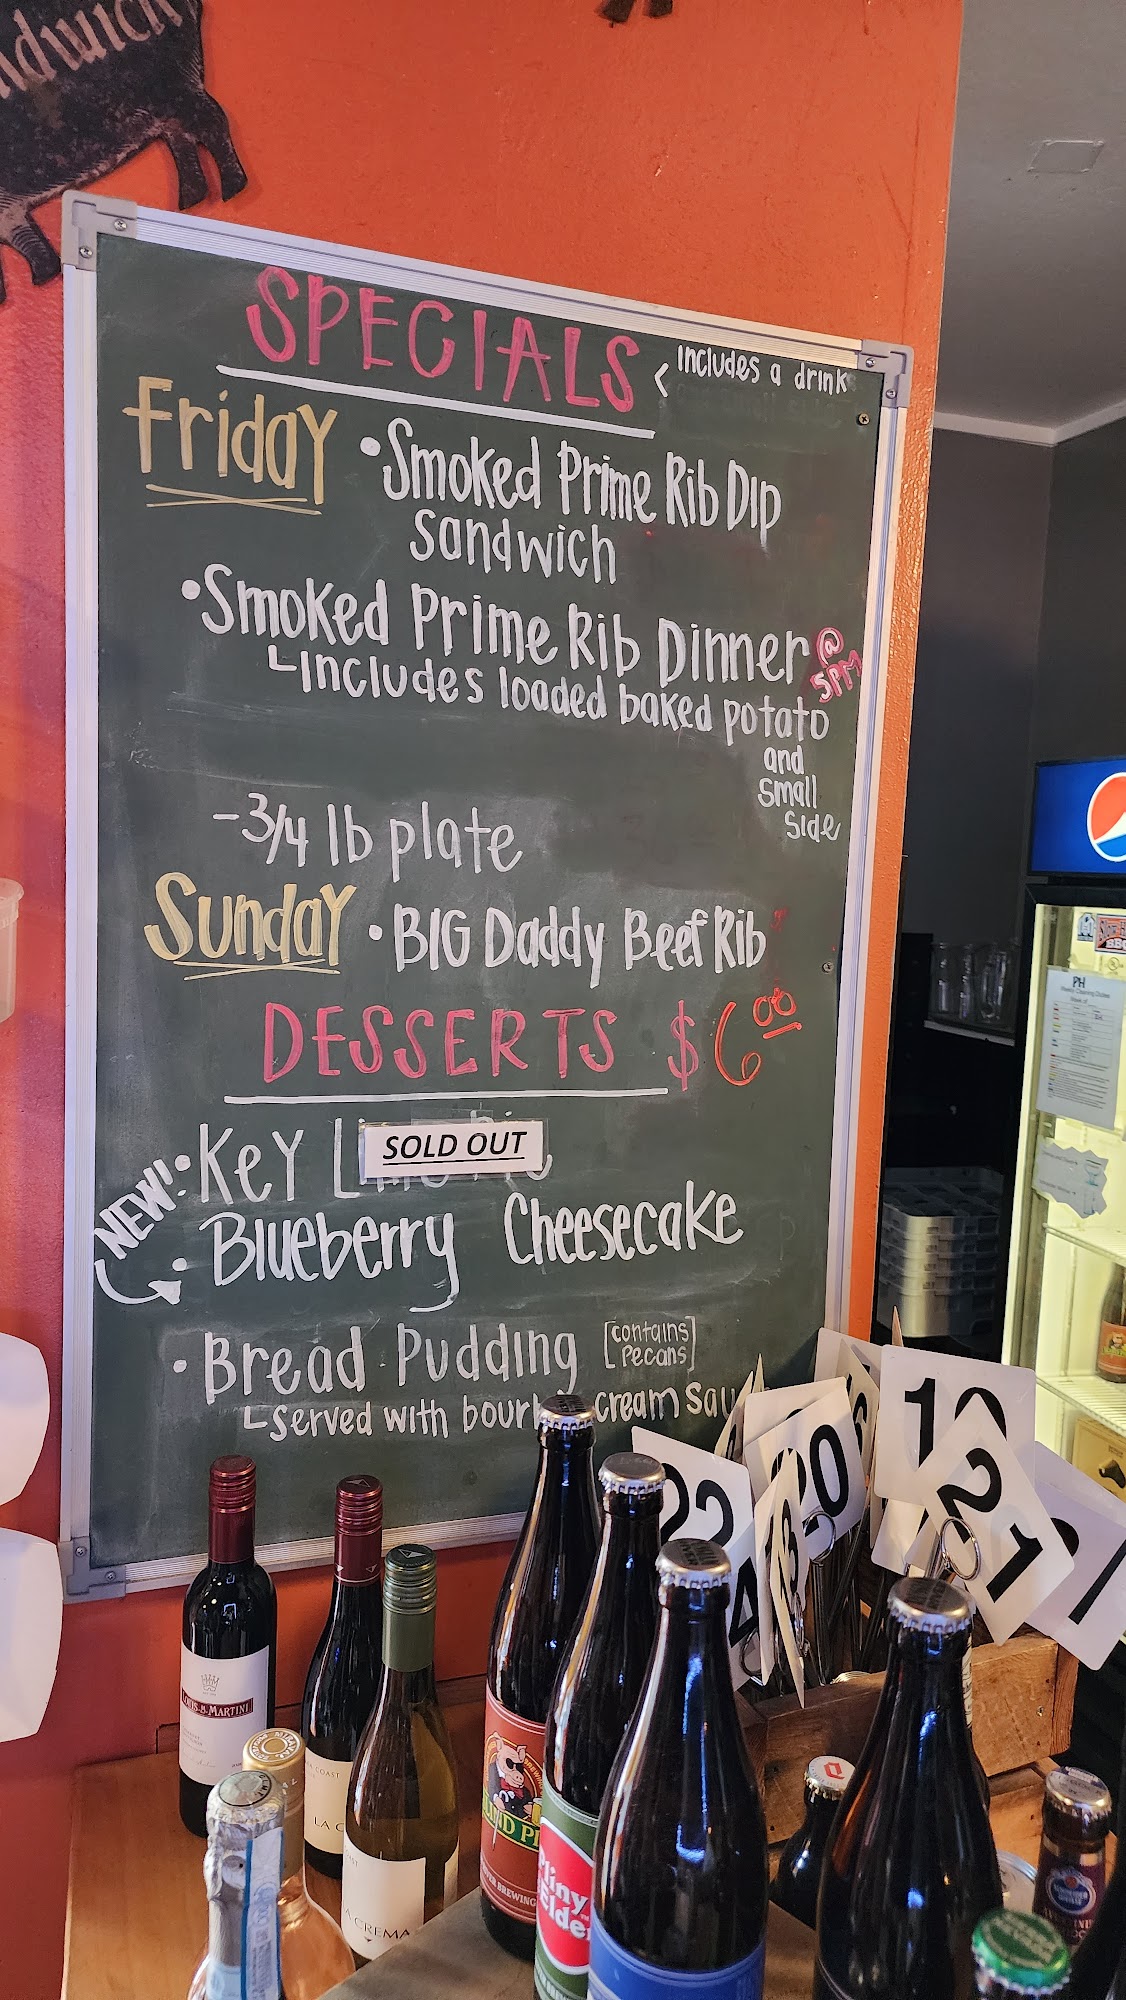 SPECIALS < includes a drink
Friday
• Smoked Prime Rib Dip
sandwich
• Smoked Prime Rib Dinner @ 5PM
Includes loaded baked potato
and
small
side
- 3/4 lb plate
Sunday • BIG Daddy Beef Rib
DESSERTS $6.00
• Key
SOLD OUT
NEW!
• Blueberry Cheesecake
• Bread Pudding [contains
Pecans]
served with cream
22
20
21
4
LOUIS M. MARTINI
COAST
LA C
CREMA
Pliny
Elder
PH